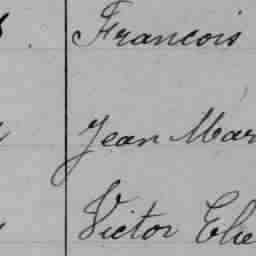 Francois
Jean Mar
Victor Elie